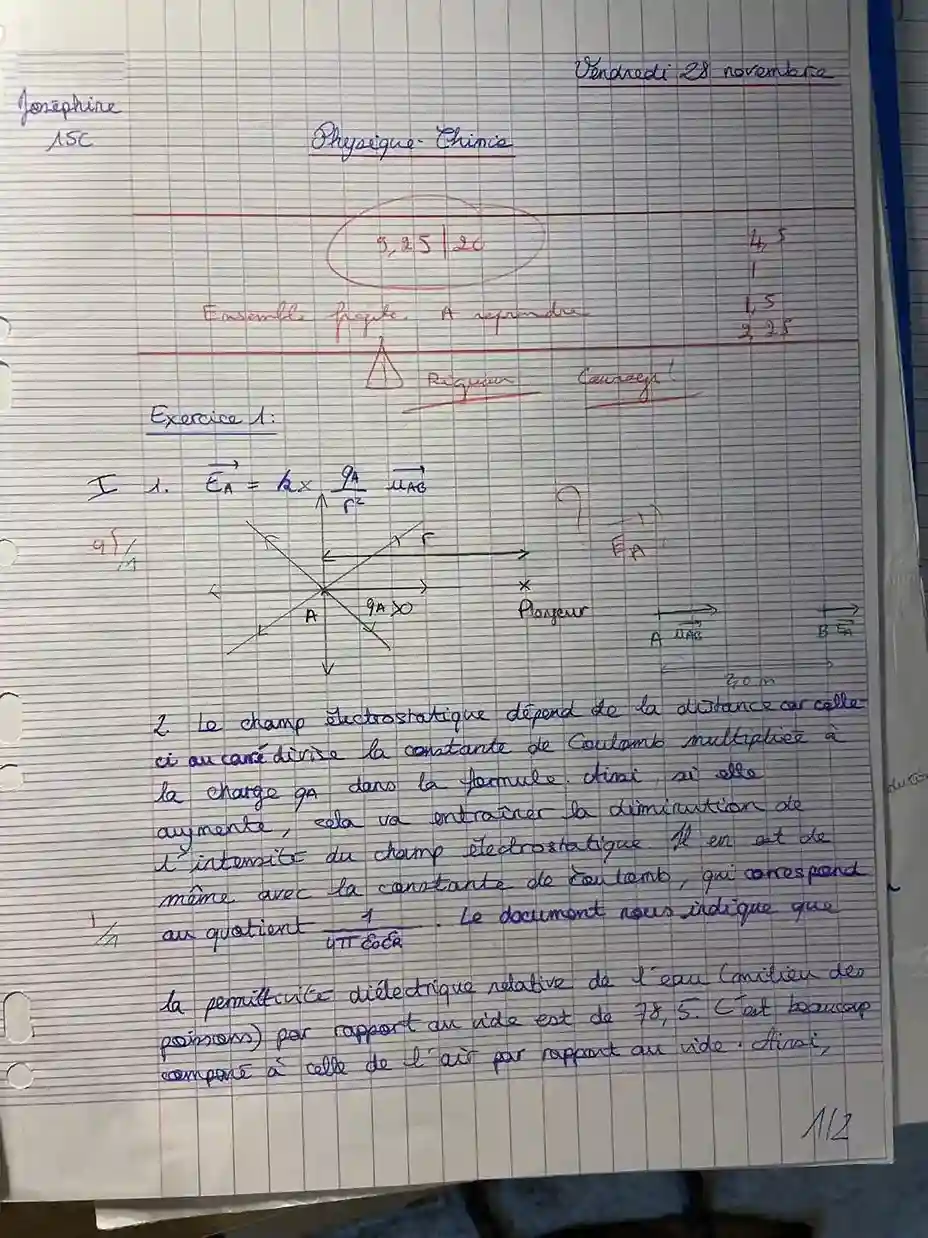 Vendredi 28 novembre
Joséphine
1SC
Physique-Chimie
9,25 | 20
4,5
1
1,5
2,25
Ensemble fragile. A reprendre
Rigueur Courage!
Exercice 1:
I 1. EA = k x qA / r² uAB
?
EA
/1
r
A
qA>0
x
Plongeur
A uAB
B EA
2,0 m
2 Le champ électrostatique dépend de la distance car celle
ci au carré divise la constante de Coulomb multipliée à
la charge qA dans la formule. Ainsi, si elle
augmente, cela va entraîner la diminution de
l'intensité du champ électrostatique Il en est de
même avec la constante de Coulomb, qui correspond
au quotient 1 / 4π ε0εR . Le document nous indique que
1/1
la permittivité diélectrique relative de l'eau (milieu des
poissons) par rapport au vide est de 78,5. C'est beaucoup
comparé à celle de l'air par rapport au vide. Ainsi,
1/2